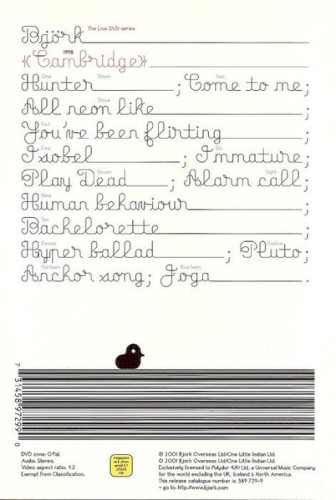 Björk The Live DVD series
«Cambridge» 1998
One Hunter ; Two Come to me;
Three All neon like ;
Four You've been flirting ;
Five Isobel ; Six Immature;
Seven Play Dead ; Eight Alarm call;
Nine Human behaviour ;
Ten Bachelorette ;
Eleven Hyper ballad ; Twelve Pluto;
Thirteen Anchor song; Fourteen Joga .
7 31458 97299 0
DVD zone: 0 Pal.
Audio: Stereo.
Video aspect ratio: 4:3.
Exempt from Classification.
© 2001 Bjork Overseas Ltd/One Little Indian Ltd.
℗ 2001 Bjork Overseas Ltd/One Little Indian Ltd.
Exclusively licensed to Polydor (UK) Ltd, a Universal Music Company
for the world excluding the UK, Iceland & North America.
This release catalogue number is: 589 729-9
– go to: http://www.bjork.com